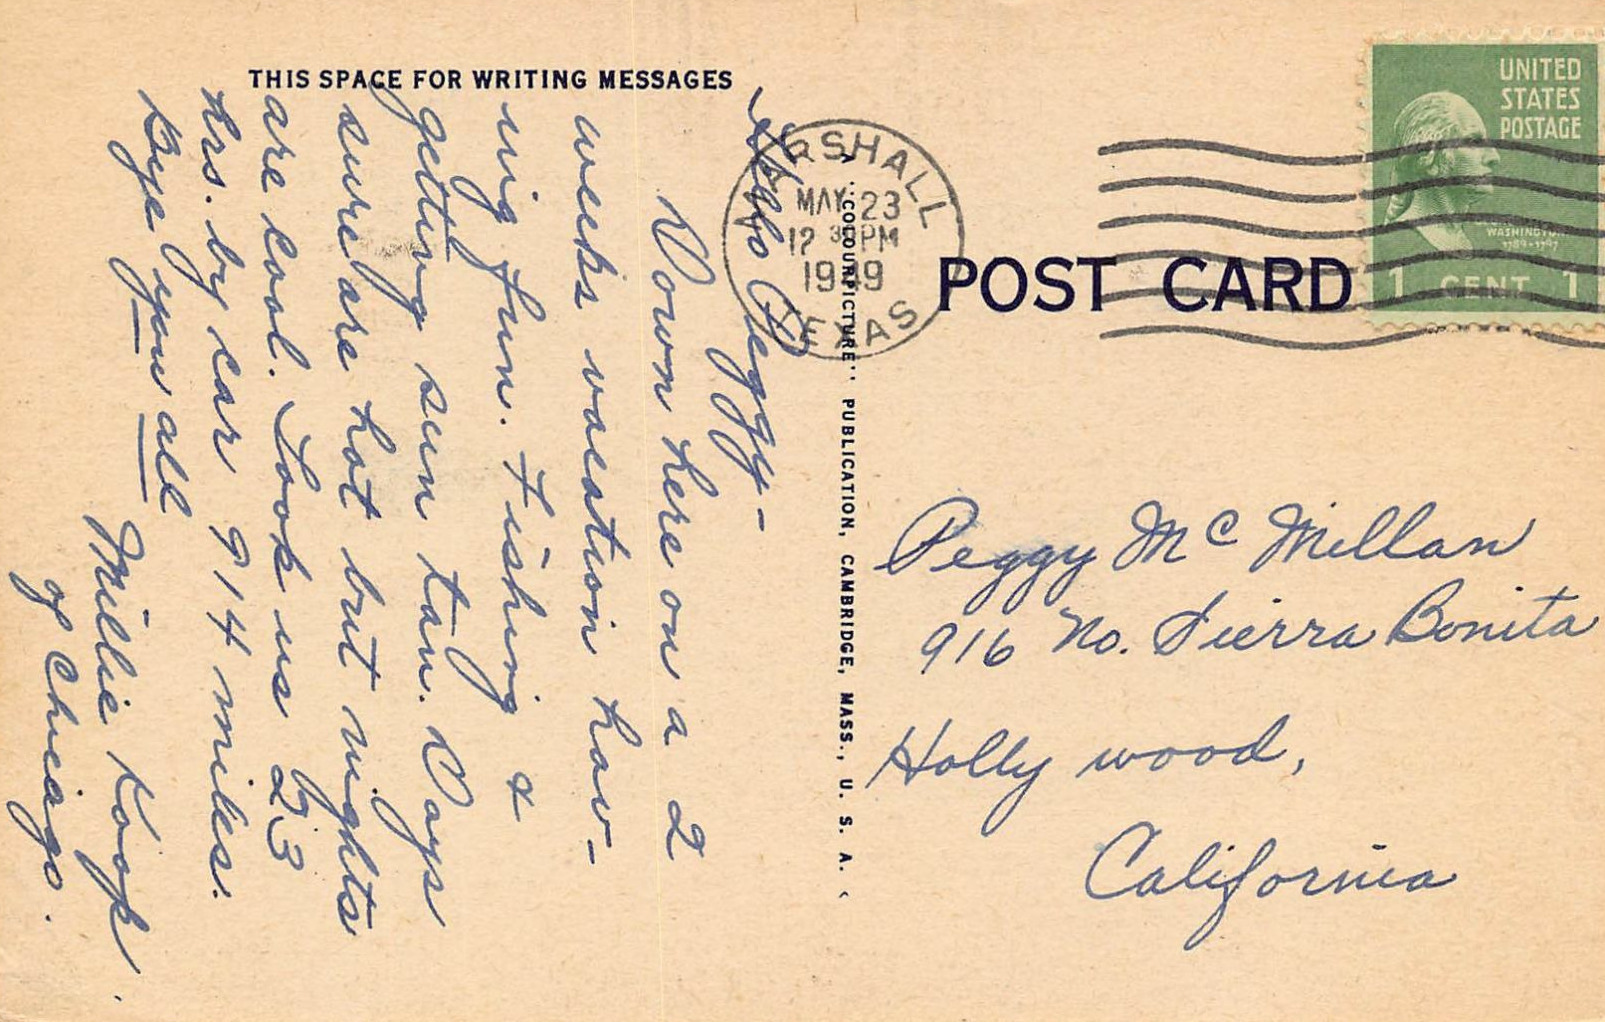 THIS SPACE FOR WRITING MESSAGES
Hello Peggy -
Down here on a 2
weeks vacation hav-
ing fun. Fishing &
getting sun tan. Days
sure are hot but nights
are cool. Took us 23
hrs. by car 914 miles.
Bye you all
Millie Koop.
of Chicago.
"COLOURPICTURE" PUBLICATION, CAMBRIDGE, MASS., U. S. A.
MARSHALL
MAY 23
12 30 PM
1949
TEXAS
POST CARD
UNITED
STATES
POSTAGE
WASHINGTON
1789-1797
1 CENT 1
Peggy Mc Millan
916 No. Sierra Bonita
Holly wood,
California